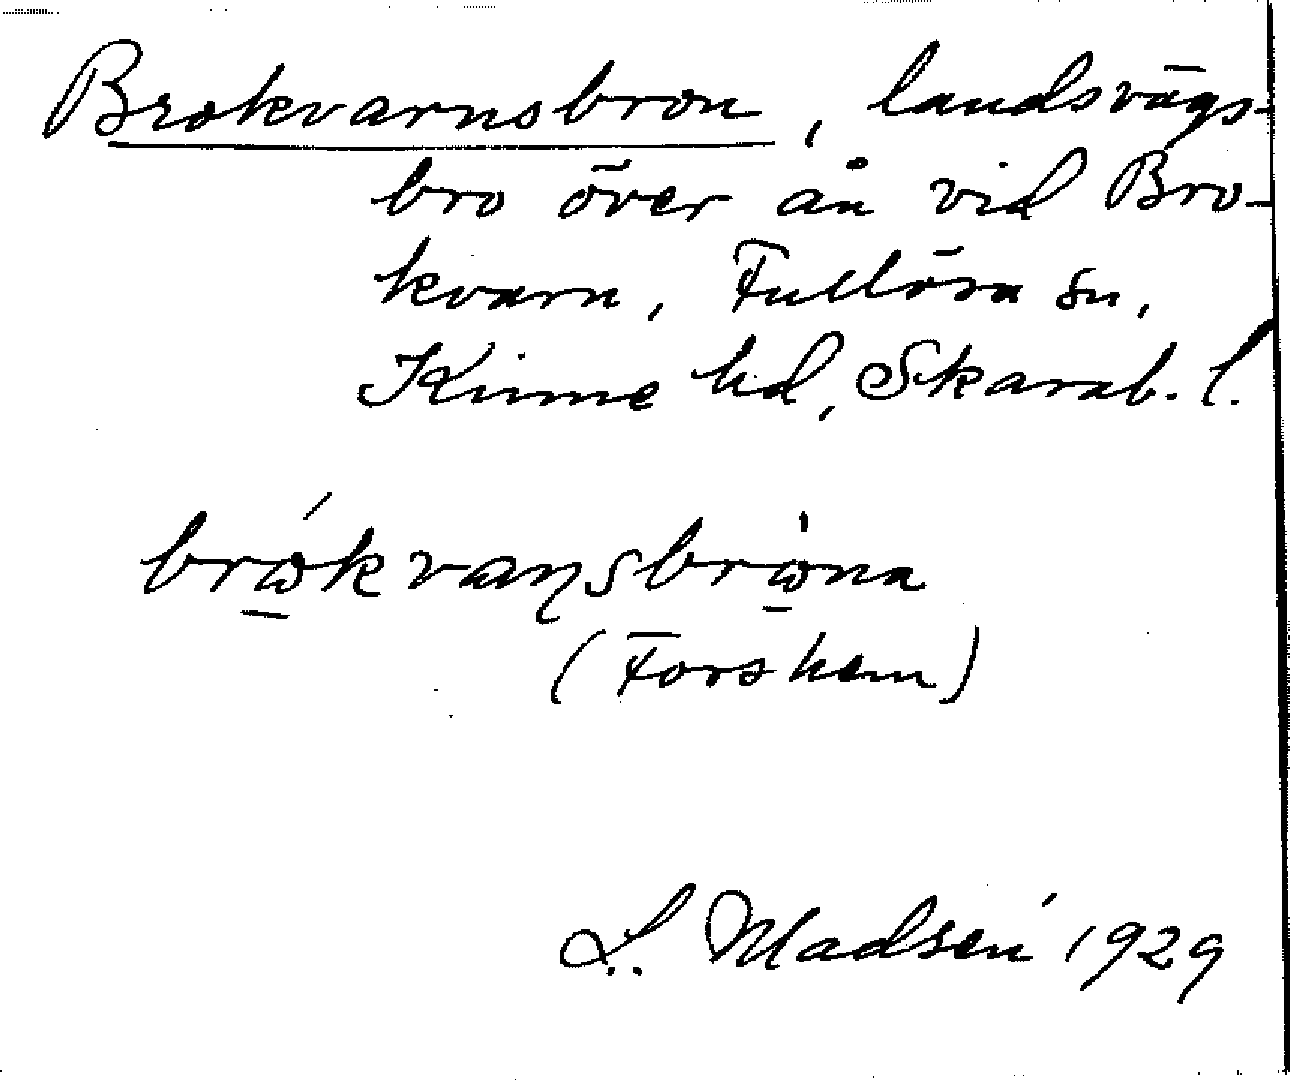 Brokvarnsbron, landsvägs-
bro över ån vid Bro-
kvarn, Fullösa sn,
Kinne hd, Skarab. l.
brώ̲kvaṇsbrὼ̲na
(Forshem)
L. Madsén 1929